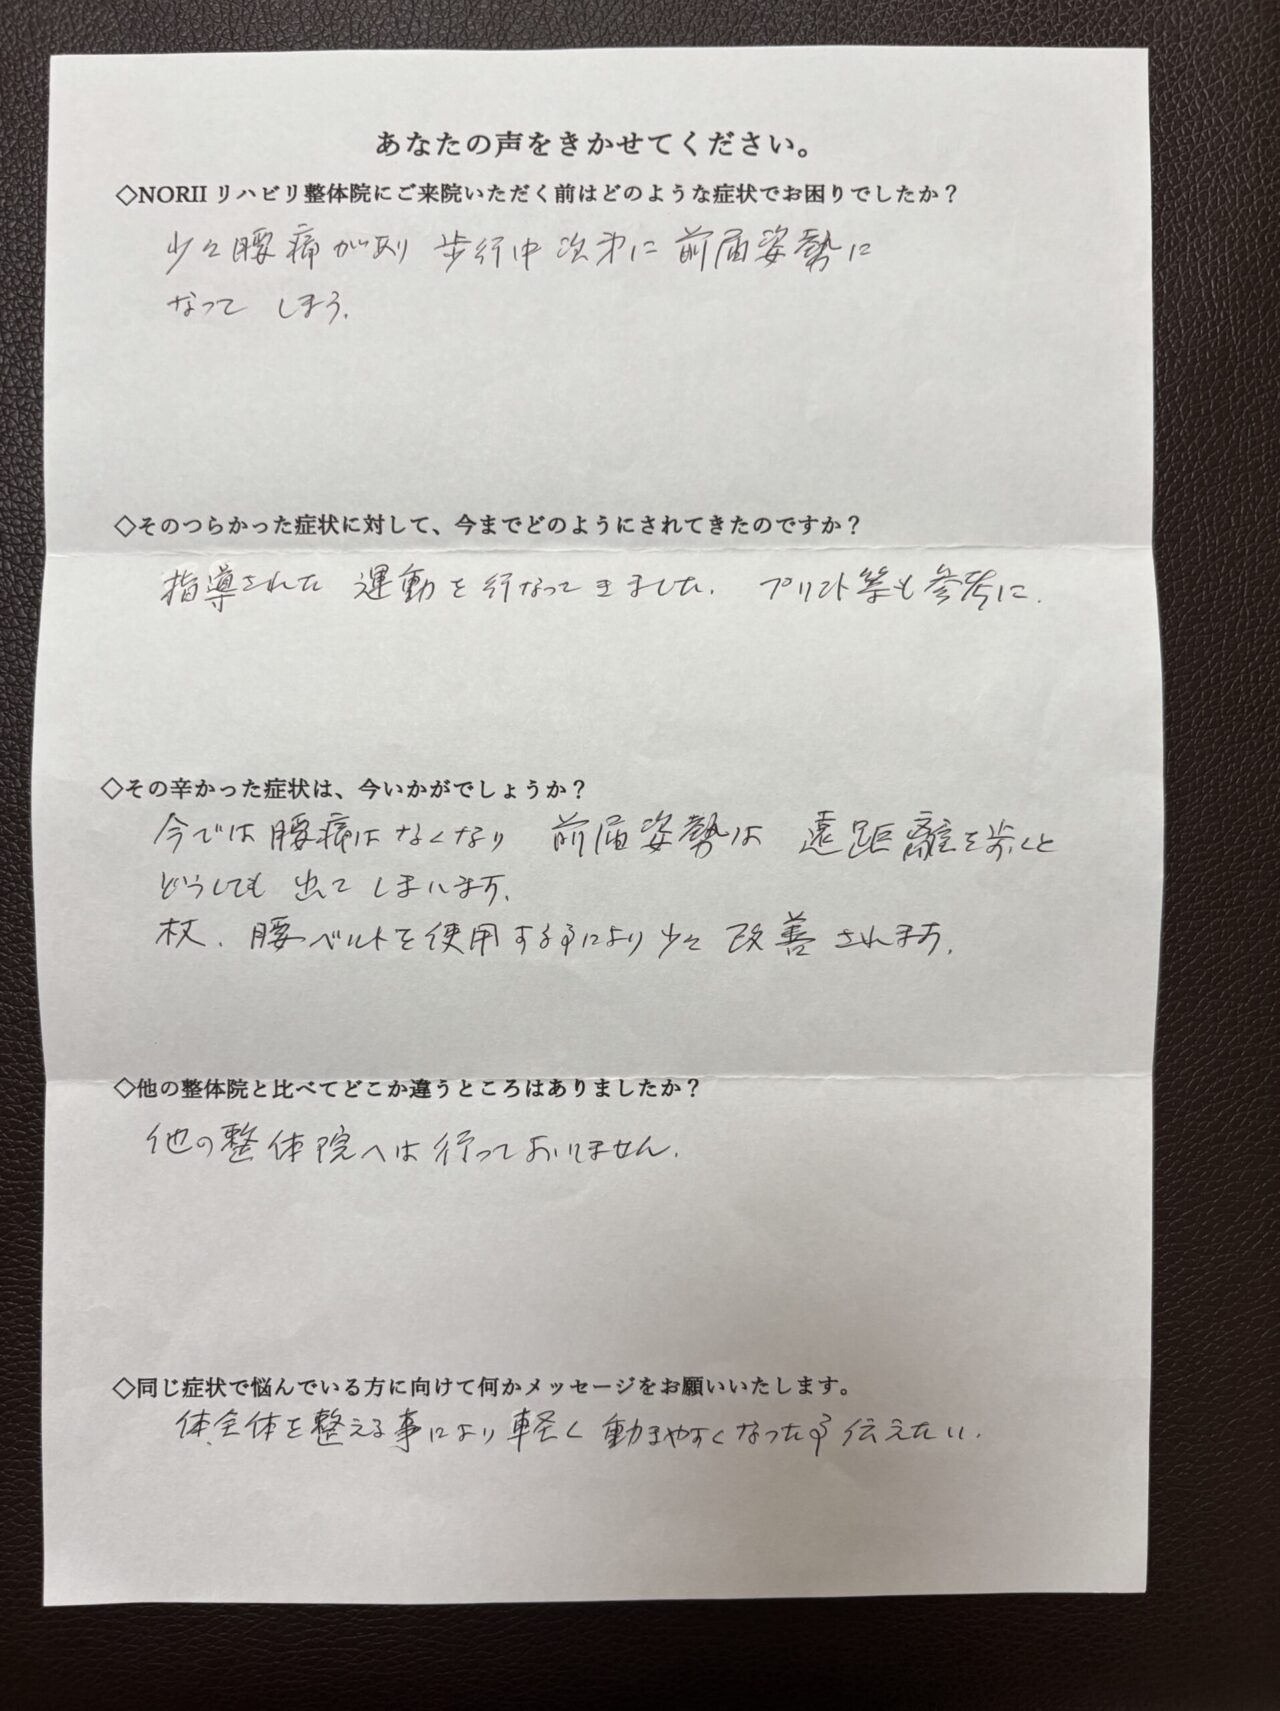 あなたの声をきかせてください。
◇NORII リハビリ整体院にご来院いただく前はどのような症状でお困りでしたか？
少々腰痛があり 歩行中 次第に 前屈姿勢に
なって しまう.
◇そのつらかった症状に対して、今までどのようにされてきたのですか？
指導された 運動を行なってきました. プリント等も参考に.
◇その辛かった症状は、今いかがでしょうか？
今では 腰痛はなくなり 前屈姿勢は 遠距離を歩くと
どうしても 出て しまいます.
杖、腰ベルトを使用する事により少々 改善されます.
◇他の整体院と比べてどこか違うところはありましたか？
他の整体院へは行っておりません.
◇同じ症状で悩んでいる方に向けて何かメッセージをお願いいたします。
体全体を整える事により軽く動きやすくなった事伝えたい.